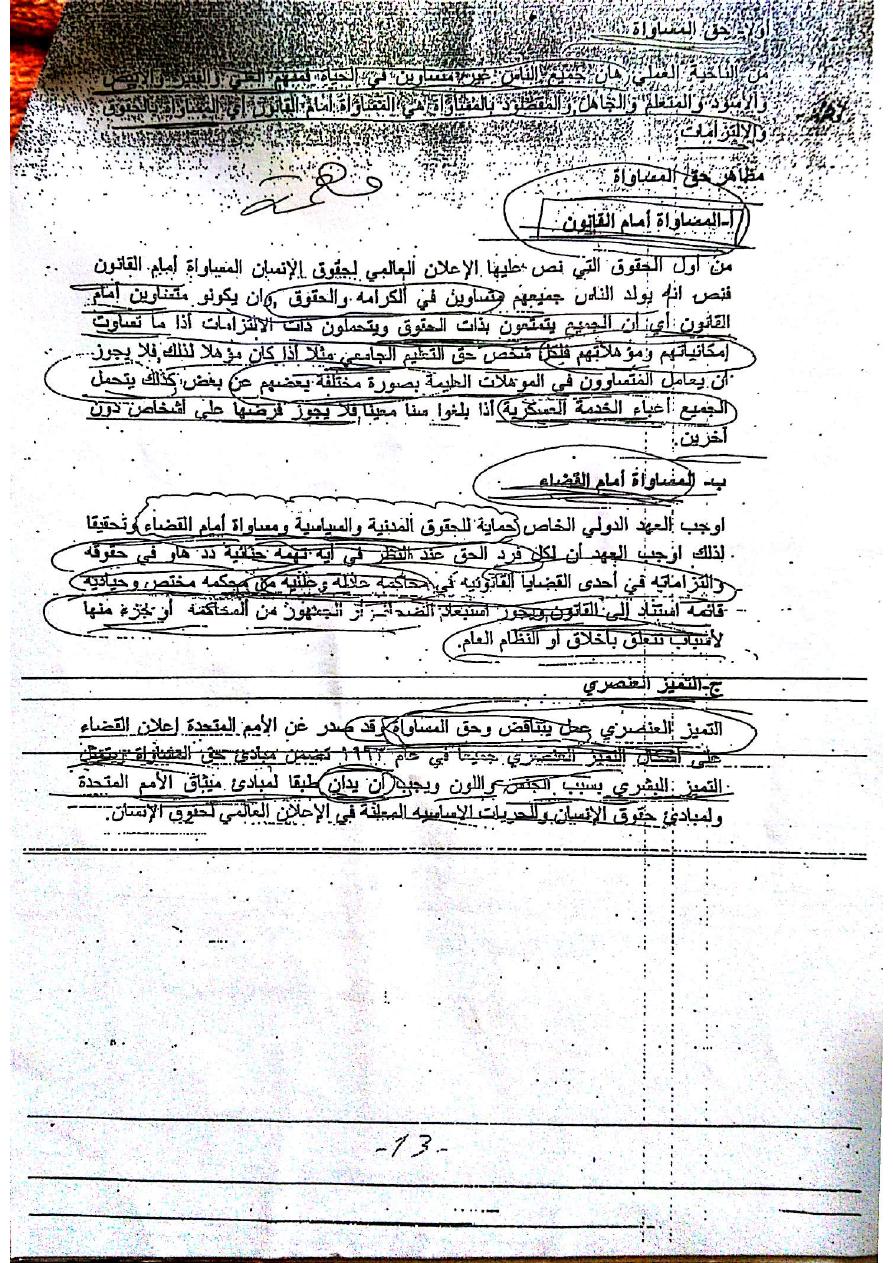 أولا: حق المساواة
من الناحية العملي فان جميع الناس غير متساوين في الحياة فمنهم الغني والفقير والأبيض
والأسود والمتعلم والجاهل والمقصود بالمساواة هي المساواة أمام القانون أي المساواة بالحقوق
والالتزامات
مظاهر حق المساواة
مهمة
أ-المساواة أمام القانون
من أول الحقوق التي نص عليها الإعلان العالمي لحقوق الإنسان المساواة أمام القانون
فنص انه يولد الناس جميعهم متساوين في الكرامه والحقوق وان يكونو متساوين أمام
القانون أي أن الجميع يتمتعون بذات الحقوق ويتحملون ذات الالتزامات أذا ما تساوت
إمكانياتهم ومؤهلاتهم فلكل شخص حق التعليم الجامعي مثلا أذا كان مؤهلا لذلك فلا يجوز
أن يعامل المتساوون في الموهلات العلمية بصورة مختلفة بعضهم عن بعض كذلك يتحمل
الجميع أعباء الخدمة العسكرية أذا بلغوا سنا معينا فلا يجوز فرضها على أشخاص دون
آخرين.
ب- المساواة أمام القضاء
اوجب العهد الدولي الخاص حماية للحقوق المدنية والسياسية ومساواة أمام القضاء وتحقيقا
لذلك اوجب العهد أن لكل فرد الحق عند النظر في أيه تهمه جنائية ضد هاو في حقوقه
والتزاماته في أحدى القضايا القانونيه في محاكمه عادله وعلنيه من محكمه مختص وحياديه
قائمه استناد إلى القانون ويجوز استبعاد الصحافة أو الجمهون من المحاكمه أو جزء منها
لأسباب تتعلق بأخلاق أو النظام العام.
ج-التميز العنصري
التميز العنصري عمل يتناقض وحق المساواة وقد صدر عن الأمم المتحدة إعلان القضاء
على أشكال التميز العنصري جميعا في عام ١٩٦٣ تضمن مبادئ حق المساواة ويتمثل
التميز البشري بسبب الجنس واللون ويجب أن يدان طبقا لمبادئ ميثاق الأمم المتحدة
ولمبادئ حقوق الإنسان والحريات الاساسيه المعلنة في الإعلان العالمي لحقوق الإنسان.
-13-